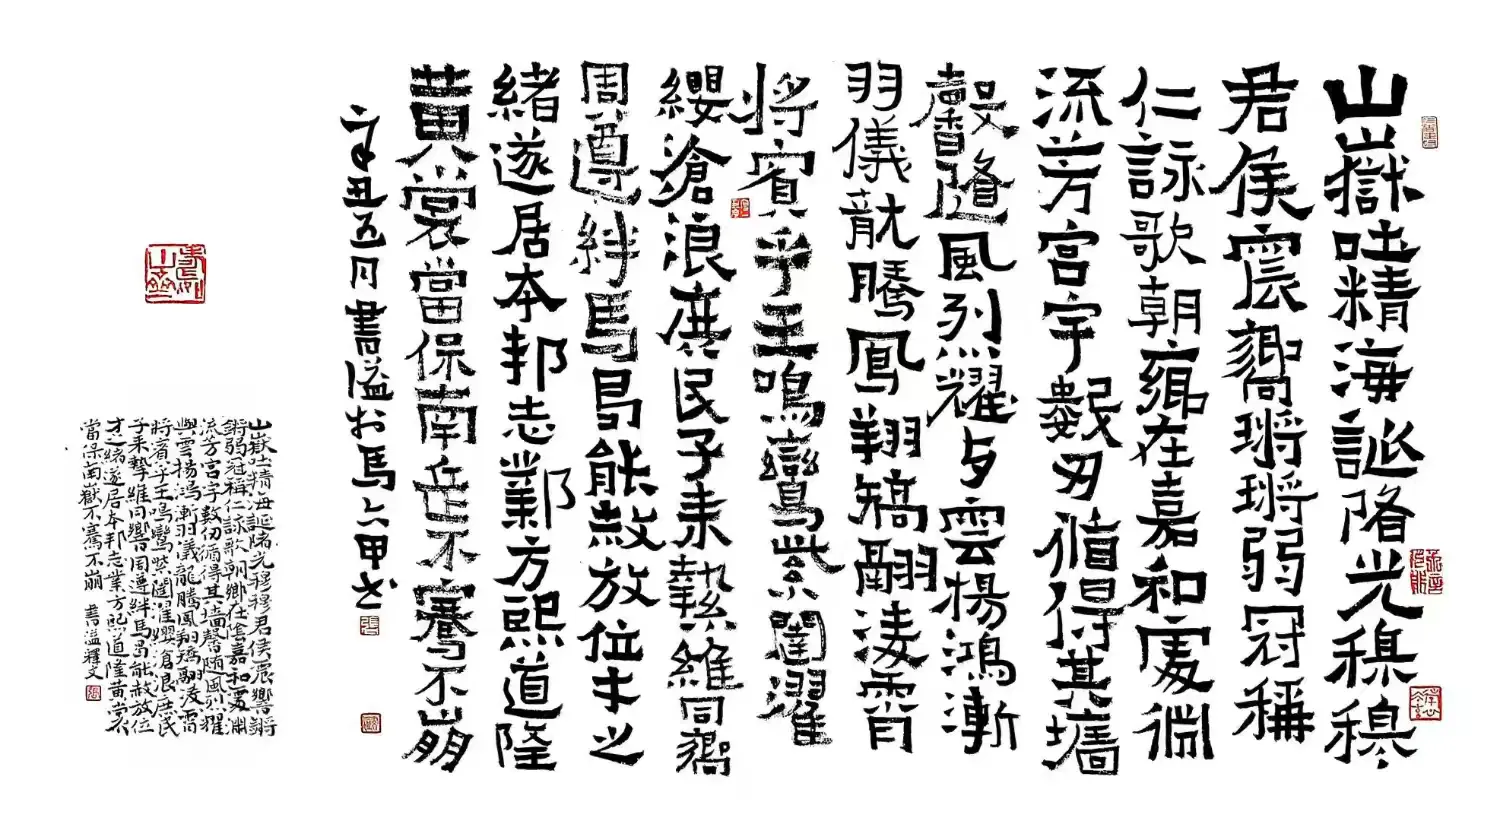 山嶽吐精海誕陏光穆穆
君侯震響鏘鏘弱冠稱
仁詠歌朝鄉在嘉和處淵
流芳宮宇數仞循得其墻
馨隨風列耀與雲楊鴻漸
羽儀龍騰鳳翔矯翮淩霄
將賓乎王鳴鸞紫闥濯
纓滄浪庶民子耒縶維同嚮
周遵絆馬曷能赦放位才之
緒遂居本邦志鄴方熙道隆
黃裳當保南岳不騫不崩
辛丑五月書溢於馬六甲
山嶽吐精海誕陏光穆穆君侯震響鏘
鏘弱冠稱仁詠歌朝鄉在嘉和處淵
流芳宮宇數仞循得其墻馨隨風列耀
與雲楊鴻漸羽儀龍騰鳳翔矯翮淩霄
將賓乎王鳴鸞紫闥濯纓滄浪庶民
子耒縶維同響周遵絆馬曷能赦放位
才之緒遂居本邦志業方熙道隆黃裳
當保南嶽不騫不崩 書溢釋文